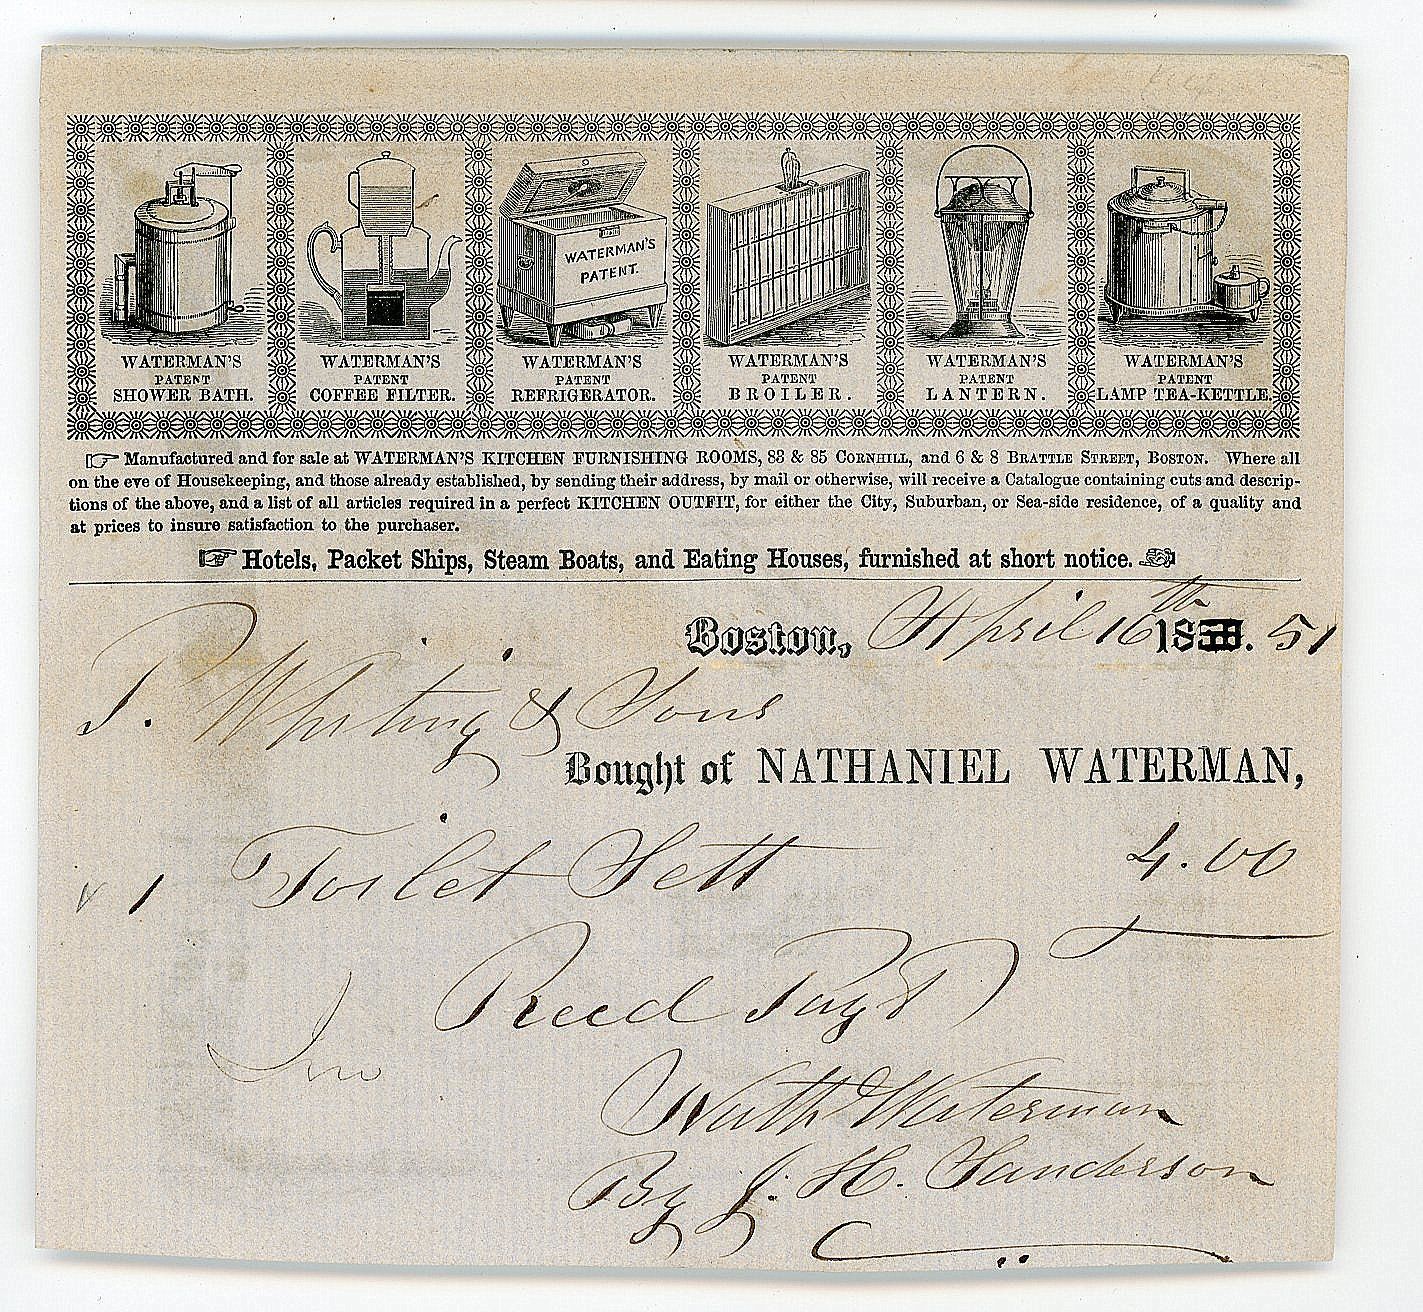 WATERMAN'S
PATENT.
WATERMAN'S
PATENT
SHOWER BATH.
WATERMAN'S
PATENT
COFFEE FILTER.
WATERMAN'S
PATENT
REFRIGERATOR.
WATERMAN'S
PATENT
BROILER.
WATERMAN'S
PATENT
LANTERN.
WATERMAN'S
PATENT
LAMP TEA-KETTLE.
☞ Manufactured and for sale at WATERMAN'S KITCHEN FURNISHING ROOMS, 83 & 85 CORNHILL, and 6 & 8 BRATTLE STREET, BOSTON. Where all
on the eve of Housekeeping, and those already established, by sending their address, by mail or otherwise, will receive a Catalogue containing cuts and descrip-
tions of the above, and a list of all articles required in a perfect KITCHEN OUTFIT, for either the City, Suburban, or Sea-side residence, of a quality and
at prices to insure satisfaction to the purchaser.
☞ Hotels, Packet Ships, Steam Boats, and Eating Houses, furnished at short notice. ☜
Boston, April 16th 18 . 51
P. Whiting & Sons
Bought of NATHANIEL WATERMAN,
1 Toilet Sett 4.00
Recd Payt
Nath Waterman
By J. H. Sanderson